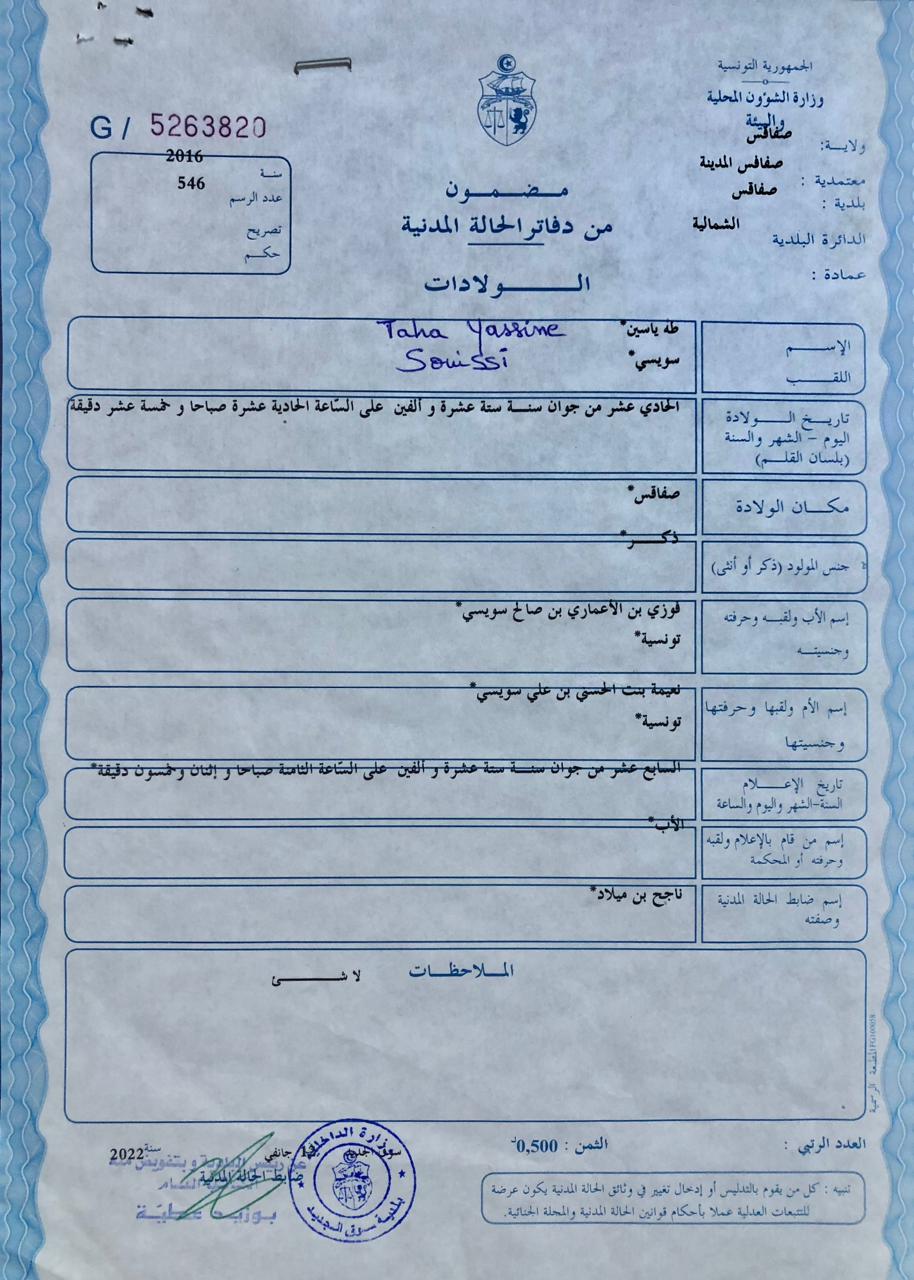 الجمهورية التونسية
وزارة الشؤون المحلية
والبيئة
ولاية: صفاقس
معتمدية : صفاقس المدينة
بلدية : صفاقس
الدائرة البلدية الشمالية
عمادة :
G / 5263820
سنة 2016
عدد الرسم 546
تصريح
حكم
مضمون
من دفاتر الحالة المدنية
الولادات
الإسم طه ياسين* Taha Yassine
اللقب سويسي* Souissi
تاريخ الولادة
اليوم – الشهر والسنة
(بلسان القلم)
الحادي عشر من جوان سنة ستة عشرة و ألفين على السّاعة الحادية عشرة صباحا و خمسة عشر دقيقة
مكان الولادة
صفاقس*
جنس المولود (ذكر أو أنثى)
ذكر*
إسم الأب ولقبه وحرفته
وجنسيته
فوزي بن الأعماري بن صالح سويسي*
تونسية*
إسم الأم ولقبها وحرفتها
وجنسيتها
نعيمة بنت الحسني بن علي سويسي*
تونسية*
تاريخ الإعلام
السنة-الشهر واليوم والساعة
السابع عشر من جوان سنة ستة عشرة و ألفين على السّاعة الثامنة صباحا و إثنان وخمسون دقيقة*
إسم من قام بالإعلام ولقبه
وحرفته أو المحكمة
الأب*
إسم ضابط الحالة المدنية
وصفته
ناجح بن ميلاد*
الملاحظات
لا شئ
المطبعة الرسمية
العدد الرتبي :
الثمن : 0,500د
تنبيه : كل من يقوم بالتدليس أو إدخال تغيير في وثائق الحالة المدنية يكون عرضة
للتتبعات العدلية عملا بأحكام قوانين الحالة المدنية والمجلة الجنائية.
جانفي سنة 2022
ضابط الحالة المدنية
بوزيد عطيّة
وزارة الداخلية
بلدية سوق الجديد